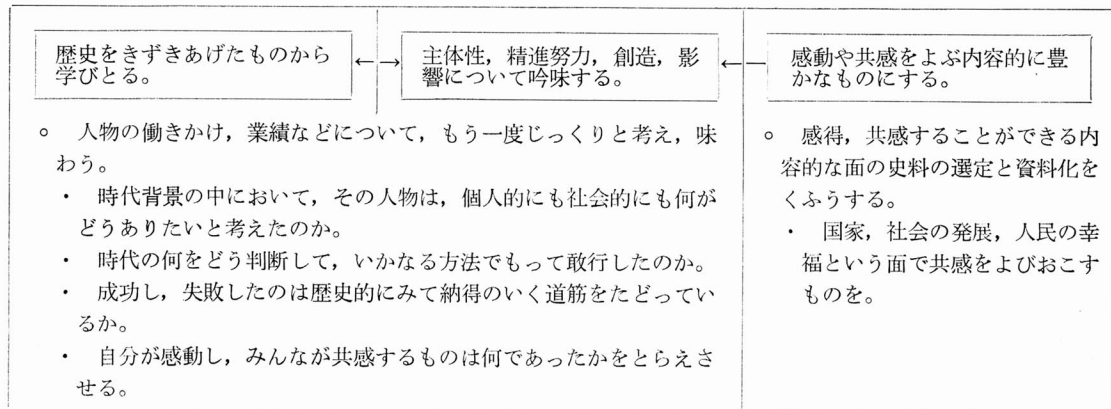 歴史をきずきあげたものから
学びとる。
←→
主体性，精進努力，創造，影
響について吟味する。
←─
感動や共感をよぶ内容的に豊
かなものにする。
○　人物の働きかけ，業績などについて，もう一度じっくりと考え，味
わう。
・　時代背景の中において，その人物は，個人的にも社会的にも何が
どうありたいと考えたのか。
・　時代の何をどう判断して，いかなる方法でもって敢行したのか。
・　成功し，失敗したのは歴史的にみて納得のいく道筋をたどってい
るか。
・　自分が感動し，みんなが共感するものは何であったかをとらえさ
せる。
○　感得，共感することができる内
容的な面の史料の選定と資料化を
くふうする。
・　国家，社会の発展，人民の幸
福という面で共感をよびおこす
ものを。